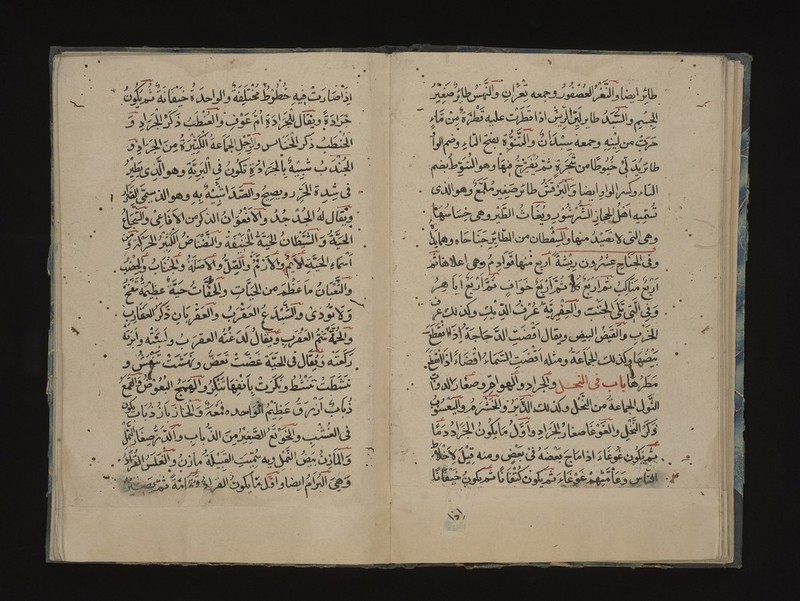 طائر ايضا والنُّغَرُ العصفور وجمعه نِغْرَانٌ والنُّهَسُ طائرٌ صَغيرُ
الجِسْم والسُّبَدُ طايرٌ لَيّنُ الرِّيش اذا قَطَرَتْ عليه قَطْرَةٌ مِنْ مَاءٍ
جَرَتْ من لِينِه وجمعه سِبْدَانٌ والتَّنَوُّط بفتح التاء وضم الواو
طائر يُدَلّي خُيوطًا من شَجَرَةٍ ثمّ يُفَرِّخُ فيهَا وهو التُنَوِّط بضم
التاء وكسر الواو ايضا والبَرْقَشُ طائر صَغير مُلَمَّعٌ وهو الذى
تُسَمِّيه اهْلُ الحجاز الشُّرْشُورَ وبُغَاثُ الطَّيْرِ وهى خِسَاسُهَا
وهى التى لا تَصِيْدُ منها والسِقْطان من الطائر جَنَاحَاه وهما يداه
وفى الجَنَاحِ عِشرُونَ رِيْشَةً اربَع منها قَوادِمُ وهى اعلاها ثم
اربَعٌ مَناكِبُ ثم اربَعٌ كلًى ثم اربَعٌ خَوافٍ ثم اربَعٌ اَبَاهِرُ
وهى التى تَلى الجَنْبَ والعِفْرِيَةُ عُرْفُ الدِّيْكِ وكذلك عرف
الخَرَبِ والقَيْضُ البيض ويقال اَقْضَتِ الدَّجَاجَةُ اذا انقطع
بَيْضُهَا وكذلك الجماعة ومنه اَقْضَتِ السَّمَاءُ اقضَاءً اذا انقطع
مَطَرُها باب فى النحل والجراد والهوامّ وصغار الدوابّ
الثَّوْلُ الجماعة من النَّحْل وكذلك الدَّبْرُ والخَشْرَمُ واليعسوب
ذَكَرُ النَّحْلِ والغَوْغَاءُ صغارُ الجراد واَوّلُ ما يكونُ الجَرَادُ دَبًا
ثم يكون غَوْغَاءَ اذا مَاجَ بَعْضُهُ فى بَعْضٍ ومنه قِيْلَ لاَخْلاطِ
النّاسِ وعَامَّتِهِمْ غَوْغَاءُ ثم يكونُ كُتْفَانًا ثم يكونُ خَيْفَانًا
اذَا صَارَتْ فيهِ خُطُوطٌ مُخْتَلِفَةٌ والواحدة خَيْفَانَةٌ ثم يكونُ
جَرَادَةً ويُقالُ للجَرَادَةِ اُمُّ عَوْفٍ والعُنْظَبُ ذَكَرُ الجَرَادِ و
الحُنْظَبُ ذكر الخنَافس والرِّجْلُ الجماعةُ الكَثيرةُ مِنَ الجَرادِ و
الجُنْدَبُ شَبِيْهٌ بالجَرادَةِ تكونُ فى البَرِّيَّةِ وهو الَّذِى يَطِيْرُ
فى شِدةِ الحَرّ ويصيح والصَّدَا شَبِيْهٌ بهِ وهو الذى
ويُقالُ لهُ الجُدْجُدُ والاُفْعُوَانُ الذكرُ من الاَفَاعِى والشُّجَاعُ
الحَيَّةُ والشَّيْطَانُ الحَيَّةُ الخَفيفَةُ والنَّضْنَاضُ الكَثيرُ الحركةِ ومن
اَسماءِ الحَيَّةِ الاَيْمُ والاَرْقَمُ والصِّلُّ والاَصَلَةُ والحُبَابُ والحِضْبُ
والثُّعْبَانُ ما عَظُمَ من الحَيّاتِ والحُفَّاثُ حيَّةٌ عظيمَةٌ تنفخُ
ولا تُؤْذِى والشَّبْدَعُ العَقْرَبُ والعُقْرُبَانُ ذَكَرُ العقاربِ
والحُمَةُ سَمُّ العقربِ ويُقالُ لدَغَتْهُ العقربُ ولَسَبَتْهُ وابَرَتْهُ
وَكَعَتْه ويُقَال فى الحيّة عَضَّتْ تَعَضُّ ونَهَشَتْ تَنْهَشُ و
نَشَطَتْ تَنْشُطُ ونَكَزَتْ بِاَنفِهَا تَنْكُزُ والهَمَجُ البَعُوضُ والقَمَعُ
ذُبابٌ اَزْرَقُ عَظِيْمٌ الواحده قَمَعَةٌ والخَازِبَازُ ذُبَابٌ يكون
فى العُشْبِ والخَوْتَعُ الصَّغيرُ مِنَ الذُّبابِ والذَّرُّ صِغارُ النَّمْلِ
والمازِنُ بَيْضُ النَّمْلِ وبِه سُمِّيَتِ القَبِيْلَةُ مازِنٌ والعَلَسُ القُرادُ
وهى البُرَامُ ايضا واوّل مَا يكونُ القُرادُ قُمْقَامَةٌ ثم يَصيرُ